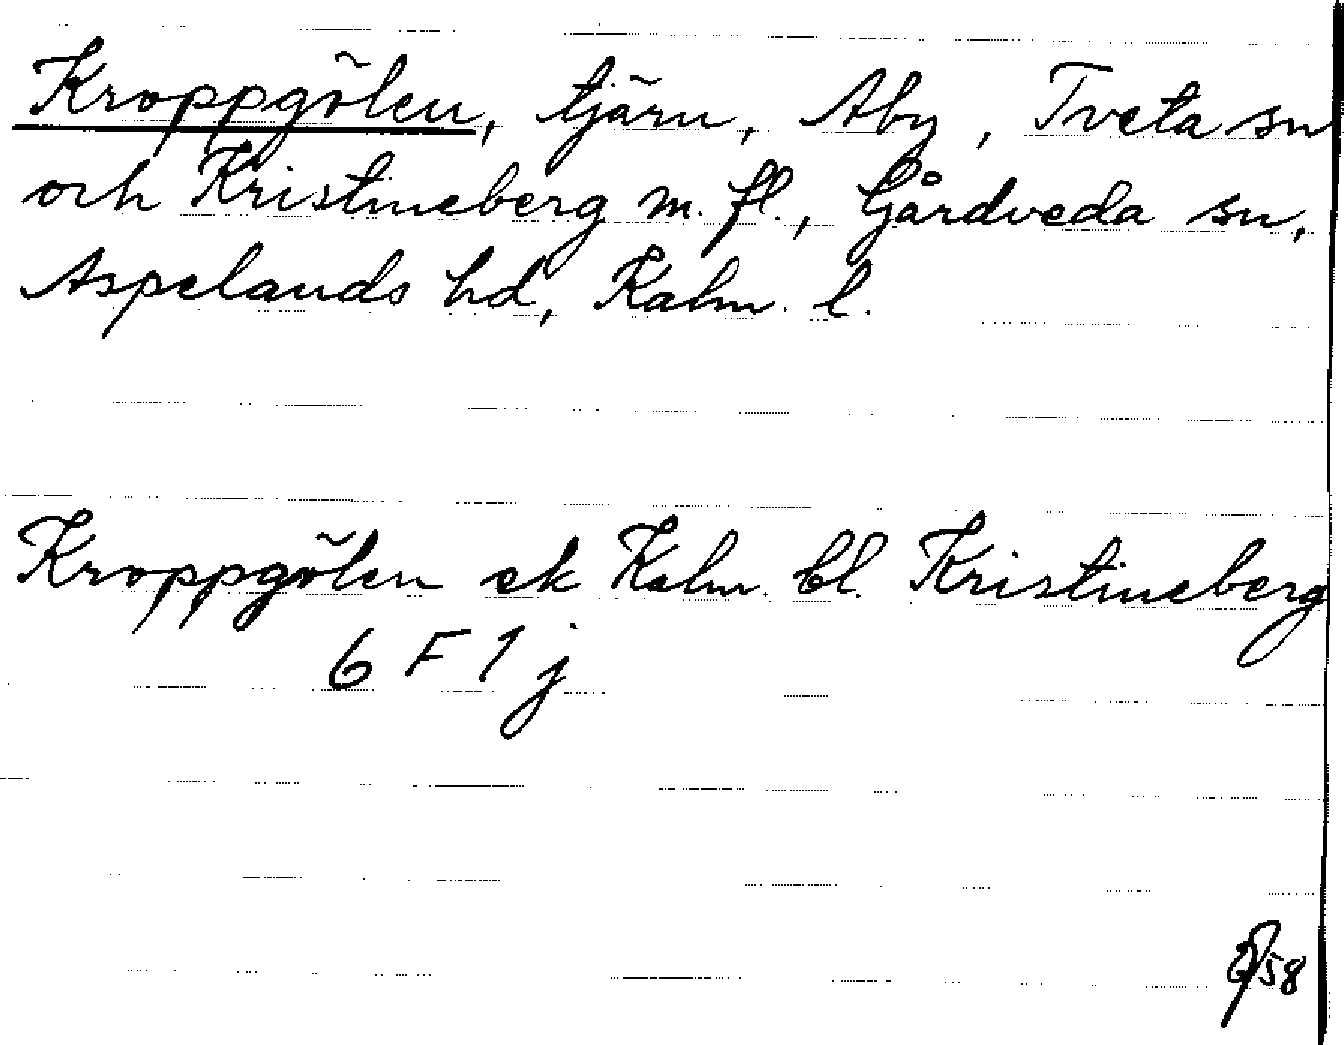 Kroppgölen, tjärn, Aby, Tveta sn
och Kristineberg m. fl., Gårdveda sn,
Aspelands hd, Kalm. l.
Kroppgölen ek Kalm. bl. Kristineberg
6 F 1 j
58